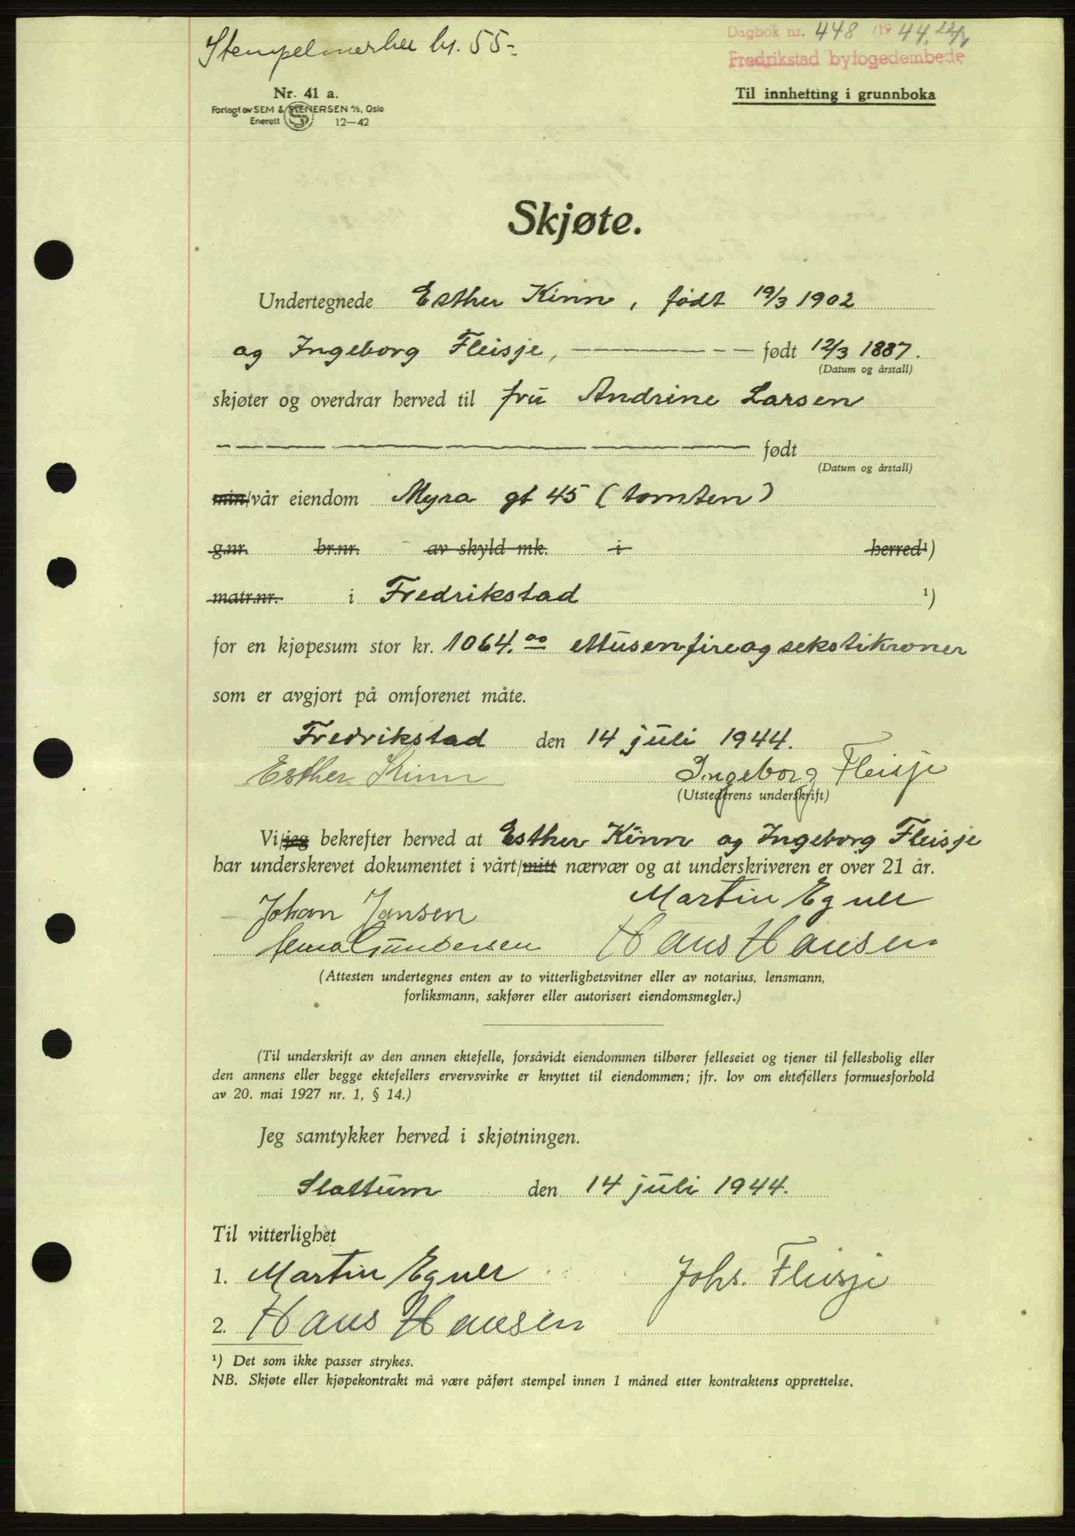 Stempelmerker kr. 55-
Dagbok nr. 448 1944, 22/7
Fredrikstad byfogedembede
Nr. 41 a.
Forlagt av SEM & STENERSEN A/S, Oslo
Enerett 12—42
Til innhefting i grunnboka
Skjøte.
Undertegnede Esther Kinn, født 19/3 1902
og Ingeborg Fleisje, født 12/3 1887.
(Datum og årstall)
skjøter og overdrar herved til fru Andrine Larsen
født
(Datum og årstall)
min/vår eiendom Myra gt 45 (tomten)
g.nr. br.nr. av skyld mk. i herred¹)
matr.nr. i Fredrikstad ¹)
for en kjøpesum stor kr. 1064.00 ettusenfireogsekstikroner
som er avgjort på omforenet måte.
Fredrikstad den 14 juli 1944.
Esther Kinn Ingeborg Fleisje
(Utstederens underskrift)
Vi/jeg bekrefter herved at Esther Kinn og Ingeborg Fleisje
har underskrevet dokumentet i vårt/mitt nærvær og at underskriveren er over 21 år.
Johan Jansen Martin Egner
Gundersen Hans Hansen
(Attesten undertegnes enten av to vitterlighetsvitner eller av notarius, lensmann,
forliksmann, sakfører eller autorisert eiendomsmegler.)
(Til underskrift av den annen ektefelle, forsåvidt eiendommen tilhører felleseiet og tjener til fellesbolig eller
den annens eller begge ektefellers ervervsvirke er knyttet til eiendommen; jfr. lov om ektefellers formuesforhold
av 20. mai 1927 nr. 1, § 14.)
Jeg samtykker herved i skjøtningen.
Slattum den 14 juli 1944.
Til vitterlighet
1. Martin Egner Johs. Fleisje
2. Hans Hansen
¹) Det som ikke passer strykes.
NB. Skjøte eller kjøpekontrakt må være påført stempel innen 1 måned etter kontraktens opprettelse.